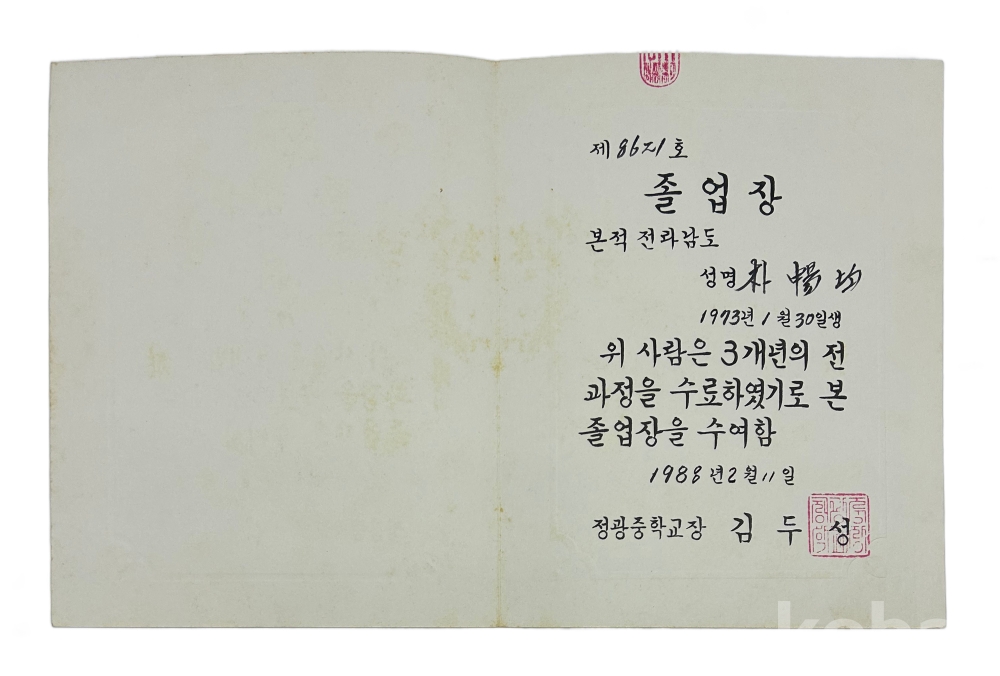 제 8671 호
졸업장
본적 전라남도
성명 朴 暢 均
1973년 1월 30일생
위 사람은 3개년의 전
과정을 수료하였기로 본
졸업장을 수여함
1988년 2월 11일
정광중학교장 김 두 성